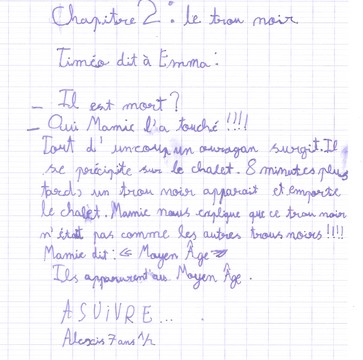 Chapitre 2 : le trou noir
Timéo dit à Emma :
_ Il est mort ?
_ Oui Mamie l'a touché !!!!
Tout d'un coup un ouragan surgit. Il
se précipite sur le chalet. 8 minutes plus
tard, un trou noir apparait et emporte
le chalet. Mamie nous explique que ce trou noir
n'était pas comme les autres trous noirs !!!!
Mamie dit : « Moyen Âge »
Ils apparurent au Moyen Âge.
A SUIVRE... .
Alexis 7 ans 1/2